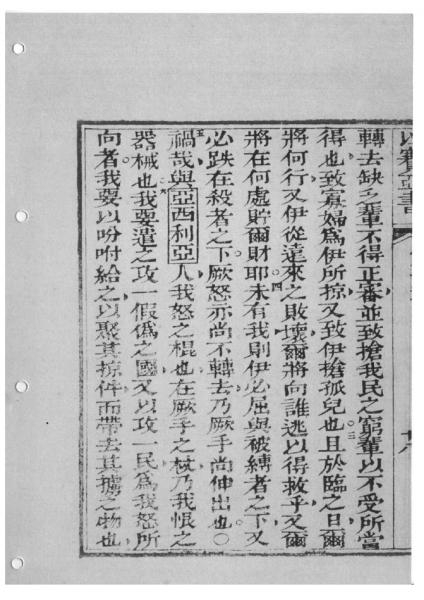 以賽亞書
轉去缺乏輩不得正審並致搶我民之窮輩以不受所當
得也致寡婦為伊所掠又致伊搶孤兒也三且於臨之日爾
將何行又伊從遠來之敗壞爾將向誰逃以得救乎又爾
將在何處貯爾財耶四未有我則伊必屈與被縛者之下又
必跌在殺者之下厥怒亦尚不轉去乃厥手尚伸出也○
五禍哉與亞西利亞人我怒之棍也在厥手之杖乃我恨之
器械也六我要遣之攻一假偽之國又以攻一民為我怒所
向者我要以吩咐給之以聚其掠件而帶去其擄之物也